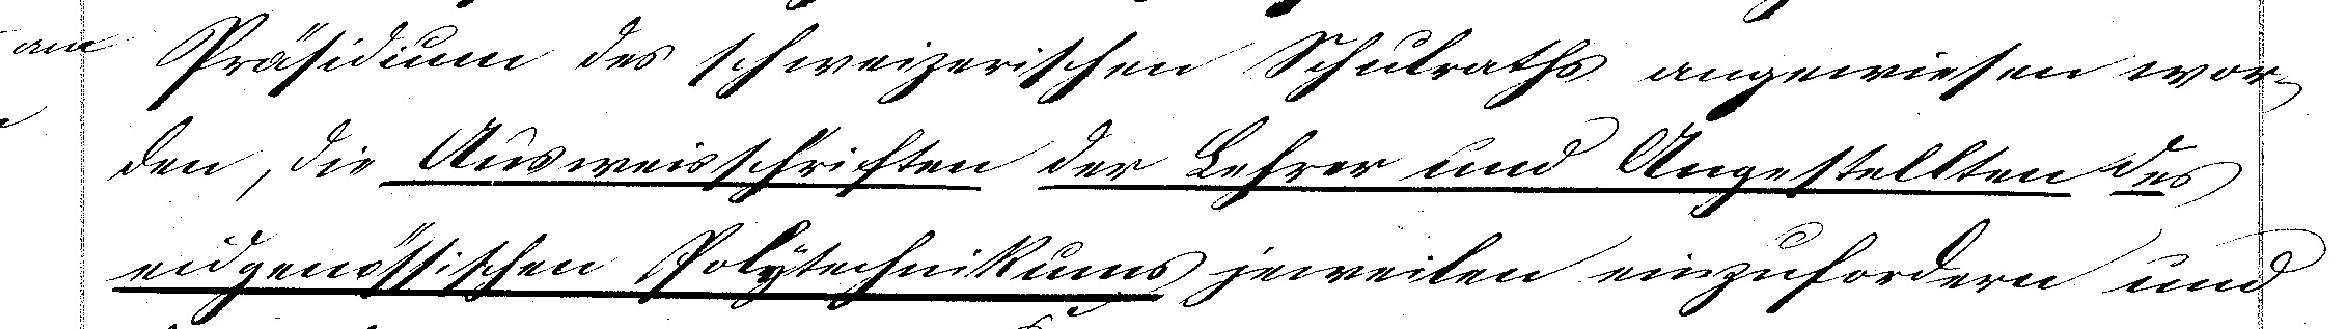 Präsidium des schweizerischen Schulraths angewiesen wor-
den, die Ausweisschriften der Lehrer und Angestellten des
eidgenössischen Polytechnikums jeweilen einzufordern und